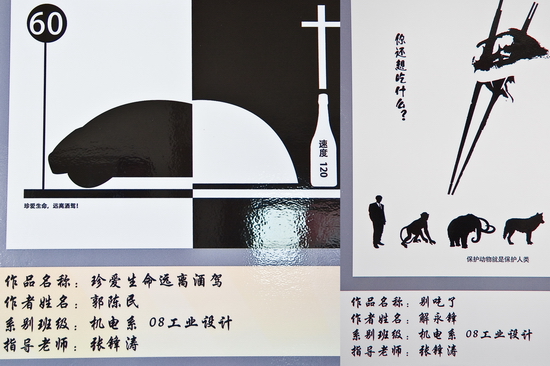 60
速度 120
珍爱生命，远离酒驾！
作品名称：珍爱生命远离酒驾
作者姓名：郭陈民
系别班级：机电系 08工业设计
指导老师：张锋涛
你还想吃什么？
保护动物就是保护人类
作品名称：别吃了
作者姓名：解永锋
系别班级：机电系 08工业设计
指导老师：张锋涛